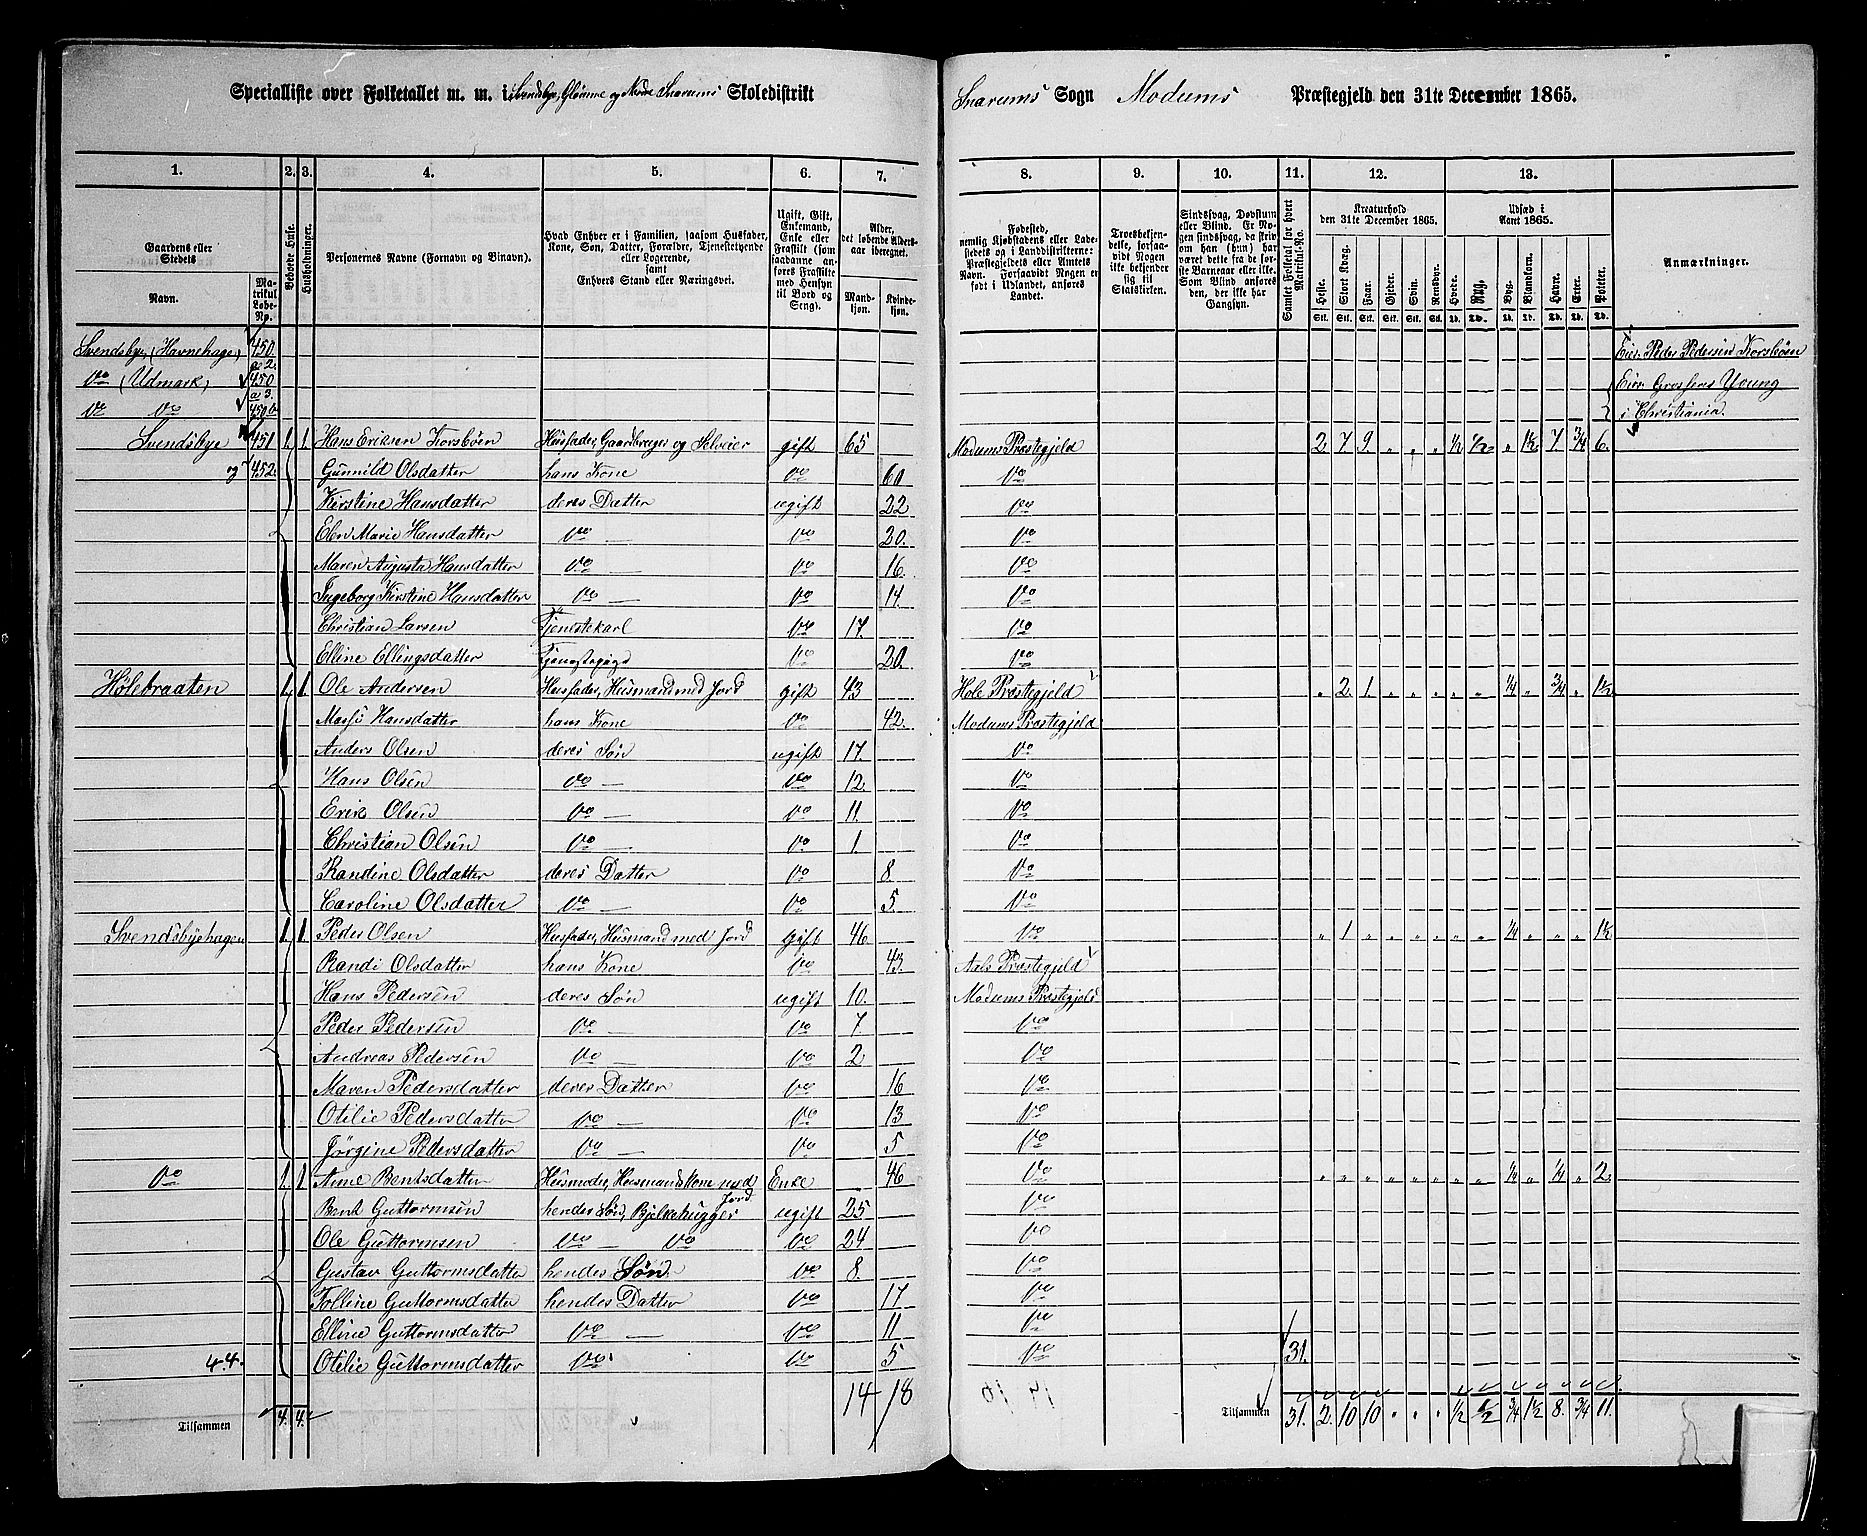 Specialliste over Folketallet m. m. i Svendsbye, Glomme og Nedre Snarums Skoledistrikt
Snarums Sogn Modums Præstegjeld den 31te December 1865.
1. 2. 3. 4. 5. 6. 7.
8. 9. 10. 11. 12. 13.
Gaardens eller Stedets
Navn.
Matrikul Løbe-No.
Beboede Huse.
Husholdninger.
Personernes Navne (Fornavn og Binavn).
Hvad Enhver er i Familien, (saasom Husfader, Kone, Søn, Datter, Forældre, Tjenestetyende eller Logerende, samt
Enhvers Stand eller Næringsvei.
Ugift, Gift, Enkemand, Enke eller Fraskilt (som saadanne anføres Fraskilte med Hensyn til Bord og Seng).
Alder, det løbende Aldersaar iberegnet.
Mandkjøn. Kvindekjøn.
Fødested, nemlig Kjøbstadens eller Ladestedets og i Landdistrikterne: Præstegjeldets eller Amtets Navn. Forsaavidt Nogen er født i Udlandet, anføres Landet.
Troesbekjendelse, forsaavidt Nogen ikke bekjender sig til Statskirken.
Sindssvag, Døvstum eller Blind. Er Nogen sindssvag, da skriv om han (hun) har været dette fra de første Barneaar eller ikke. Som Blind ansføres den, der ikke har Gangsyn.
Samlet Folketal for hvert Matrikul-No.
Kreaturhold den 31te December 1865.
Heste. Stort Kvæg. Faar. Gjeder. Svin. Rensdyr.
Udsæd i Aaret 1865.
Hvede. Rug. Byg. Blandkorn. Havre. Erter. Poteter.
Anmærkninger.
Svendsbye, (Havnehage) 450 a 2. Eier Peder Pedersen Korsböen
Do (Udmark) 450 a 3. Eier Grosserer Young
Do Do 450 b i Christiania.
Svendsbye 451 1. 1. Hans Eriksen Korsböen Husfader, Gaardbruger og Selveier gift 65 Modums Præstegjeld 2. 7. 9. „ „ „ ½ ½ „ 1½ 7. ¾ 6.
og 452. Gunnild Olsdatter hans Kone Do 60 Do
Kirstine Hansdatter deres Datter ugift 22 Do
Elen Marie Hansdatter Do — Do 20. Do
Maren Augusta Hansdatter Do — Do 16. Do
Ingeborg Kirstine Hansdatter Do — Do 14. Do
Christian Larsen Tjenestekarl Do 17. Do
Elline Ellingsdatter Tjenestepige Do 20 Do
Hølebraaten 1. 1. Ole Andersen Husfader, Husmand med Jord gift 43 Hole Præstegjeld „ 2. 1. „ „ „ „ „ ¼ „ ¾ „ 1½
Hansdatter hans Kone Do 42. Modums Præstegjeld
Anders Olsen deres Søn ugift 17. Do
Hans Olsen Do — Do 12. Do
Erik Olsen Do — Do 11. Do
Christian Olsen Do — Do 1. Do
Randine Olsdatter deres Datter Do 8. Do
Caroline Olsdatter Do — Do 5. Do
Svendsbyehagen 1. 1. Peder Olsen Husfader, Husmand med Jord gift 46 Do „ 1 „ „ „ „ „ „ ¼ „ „ „ 1½
Randi Olsdatter hans Kone Do 43. Aals Præstegjeld
Hans Pedersen deres Søn ugift 10. Modums Præstegjeld
Peder Pedersen Do — Do 7. Do
Andreas Pedersen Do — Do 2 Do
Maren Pedersdatter deres Datter Do 16 Do
Otilie Pedersdatter Do — Do 13 Do
Jörgine Pedersdatter Do — Do 5 Do
Do 1. 1. Anne Bentsdatter Husmoder, Husmandskone med Jord Enke 46 Do „ „ „ „ „ „ „ „ ¼ „ ¼ „ 2.
Bent Guttormsen hendes Søn, Bjelkehugger ugift 25 Do
Ole Guttormsen Do — Do Do 24 Do
Gustav Guttormsdatter hendes Søn Do 8. Do
Tolline Guttormsdatter hendes Datter Do 17 Do
Elline Guttormsdatter Do — Do 11 Do
44. Otilie Guttormsdatter Do Do 5 Do 31.
14 18
Tilsammen 4. 4. Tilsammen 31. 2. 10 10 „ „ „ ½ ½ ¾ 1½ 8. ¾ 11.